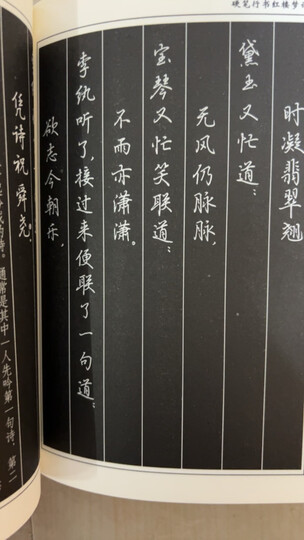 硬笔行书红楼梦
时凝翡翠翘
黛玉又忙道：
无风仍脉脉，
宝琴又忙笑联道：
不雨亦潇潇。
李纨听了，接过来便联了一句道：
欲志今朝乐，
凭诗祝舜尧。
通常是其中一人先吟第一句诗，第二